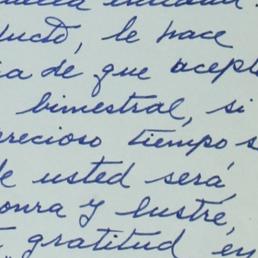 ducto, le hace
ia de que acept
bimestral, si
precioso tiempo s
de usted será,
onra y lustre,
gratitud en